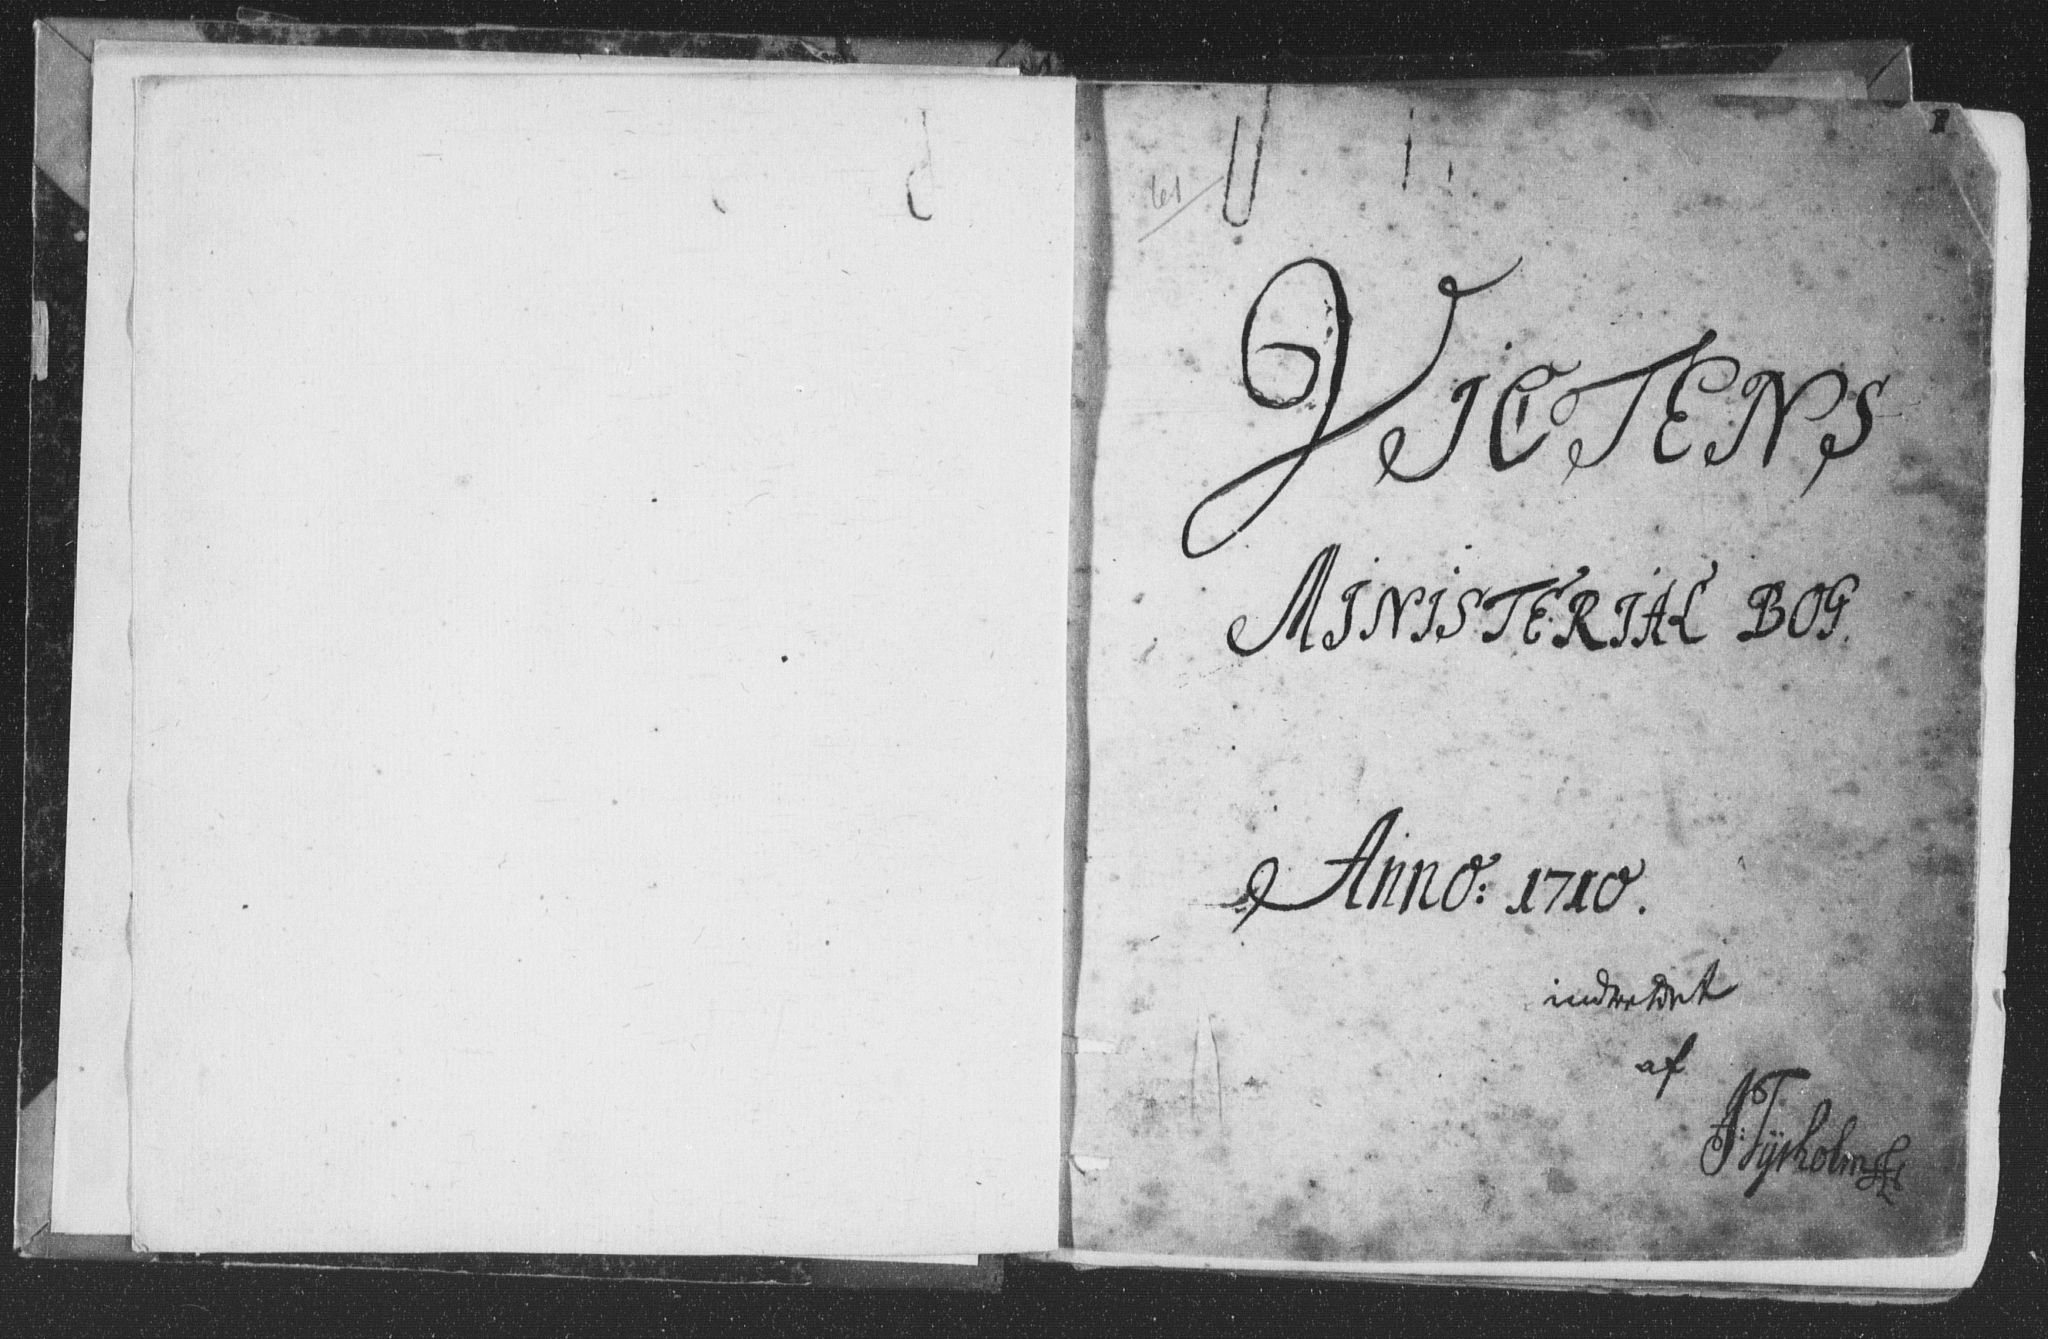 61
VICTENS
MINISTERIAL BOG.
Anno: 1710.
indrettet
af